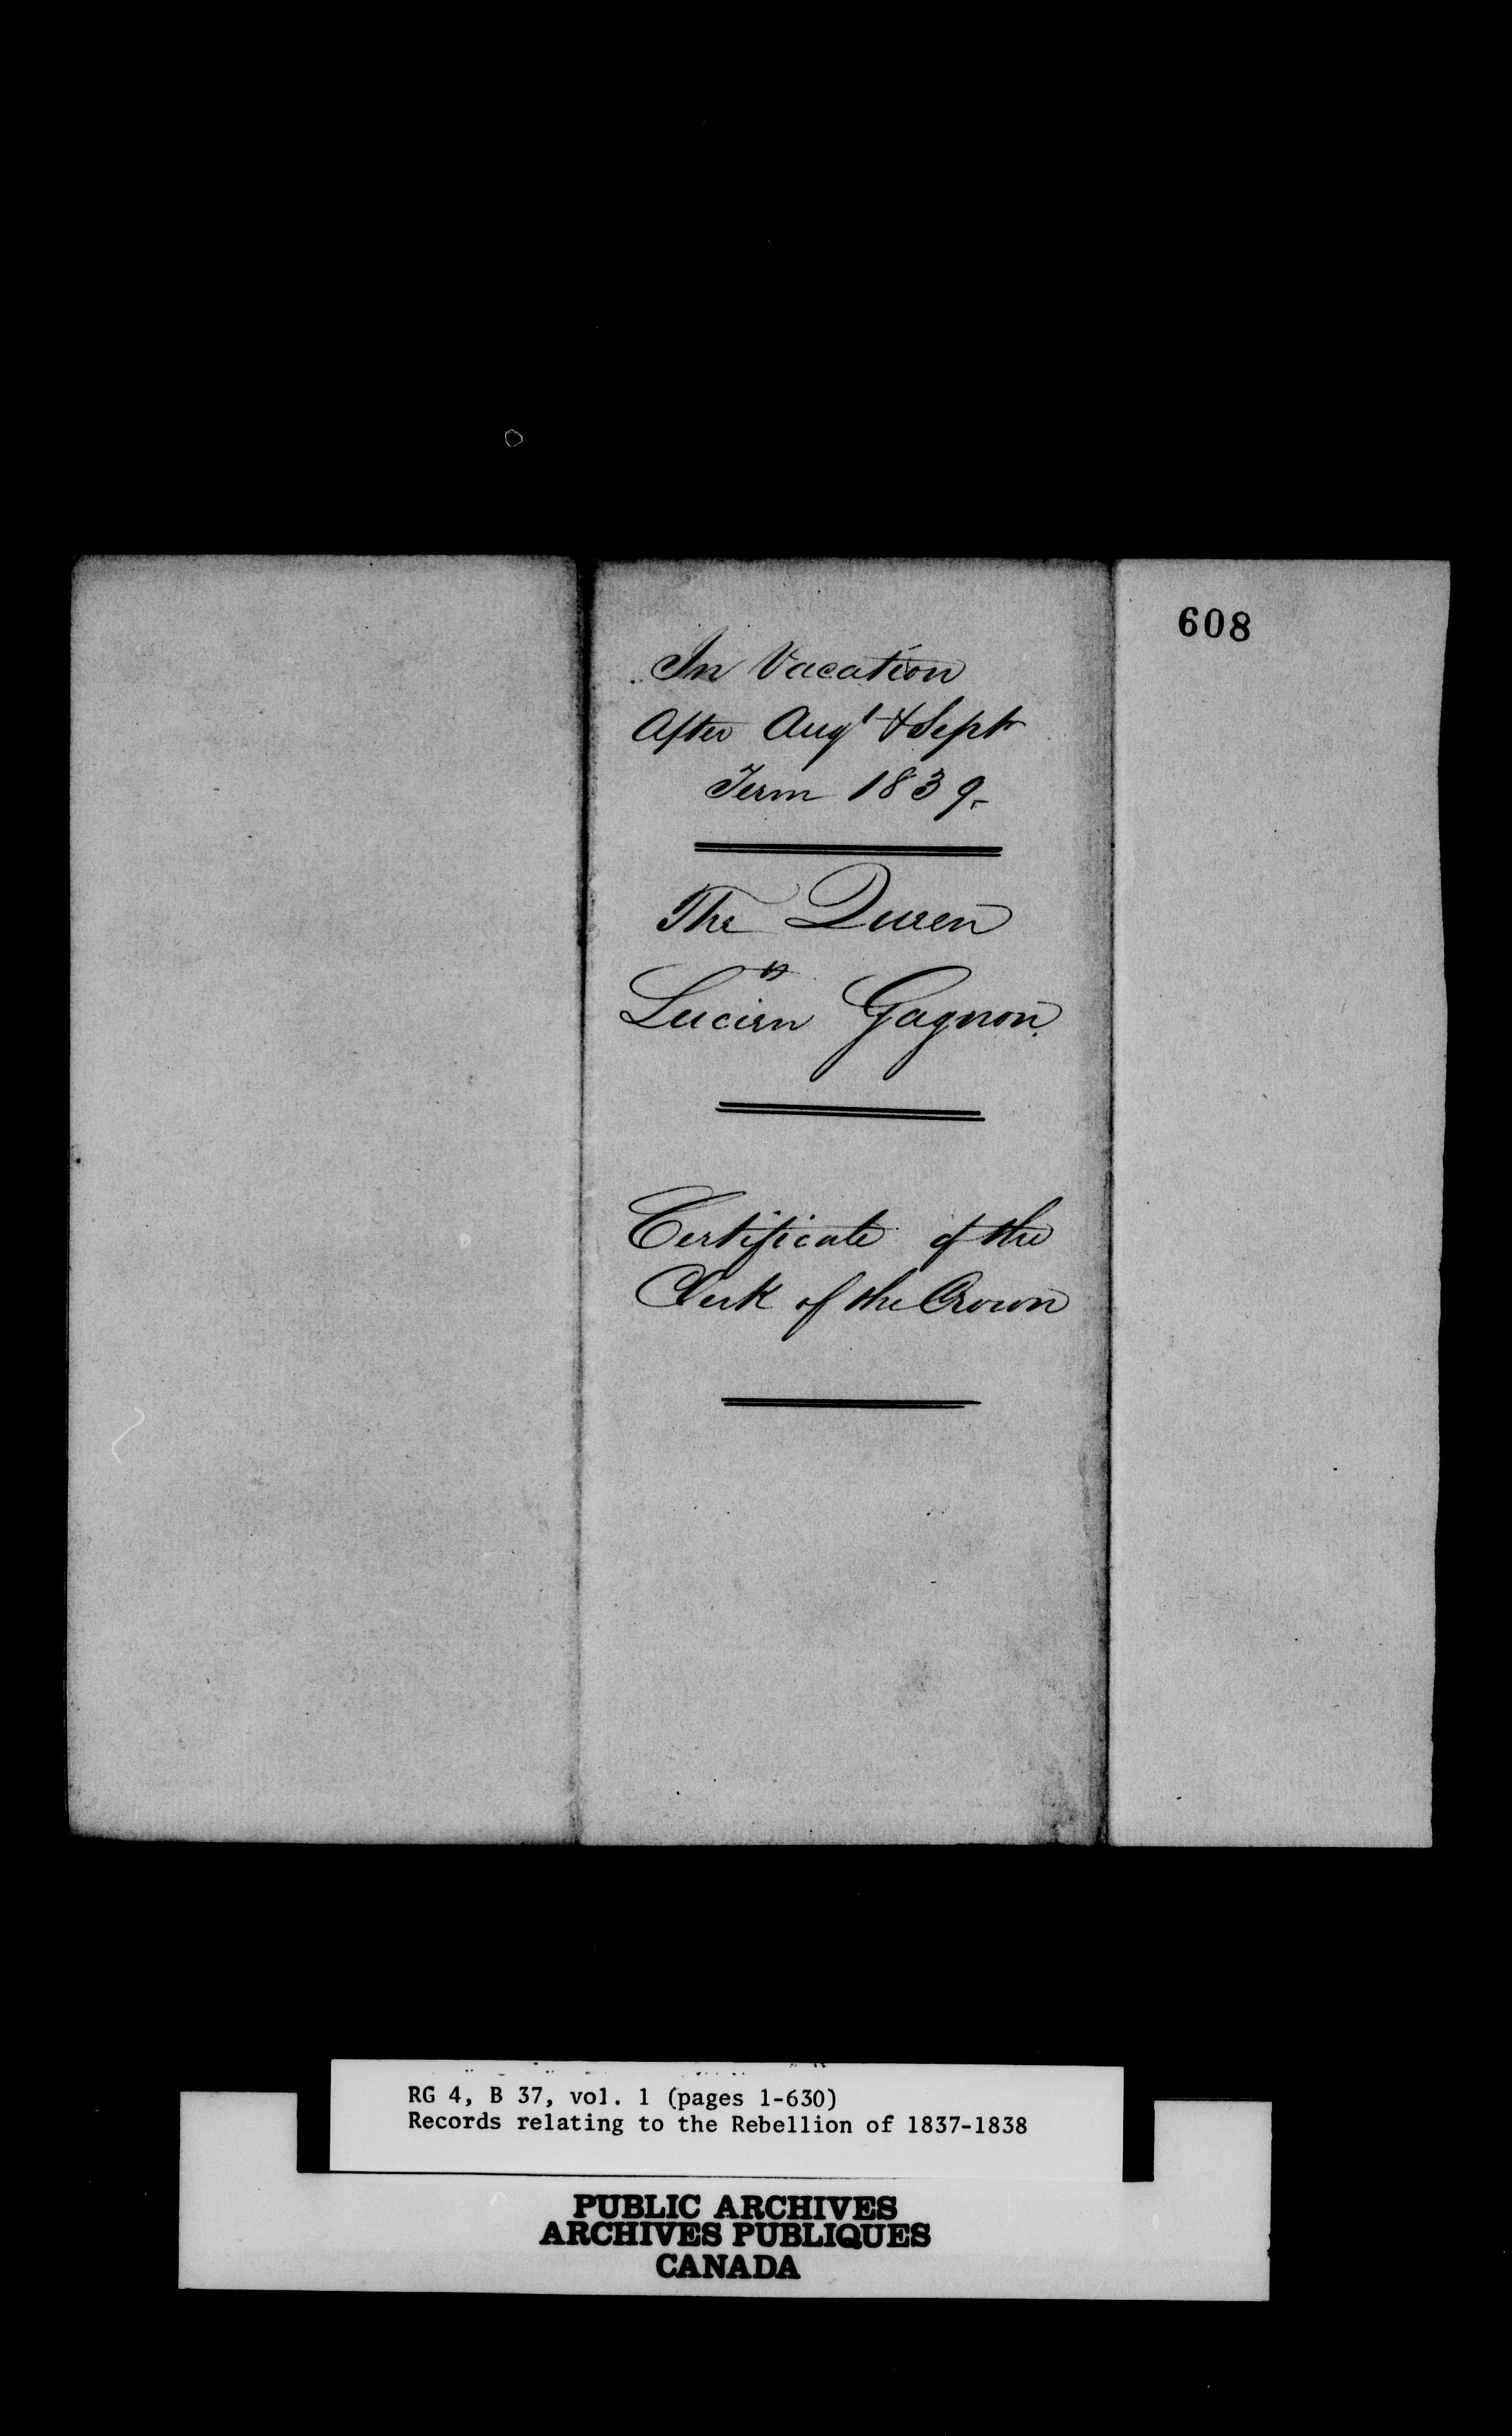 608
In Vacation
After Augt & Sept
Term 1839.
The Queen
vs
Lucien Gagnon.
Certificate of the
Clerk of the Crown
RG 4, B 37, vol. 1 (pages 1-630)
Records relating to the Rebellion of 1837-1838
PUBLIC ARCHIVES
ARCHIVES PUBLIQUES
CANADA